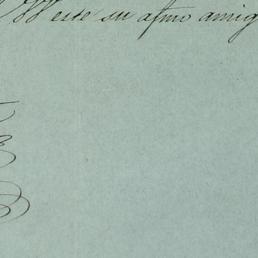 este su afmo amig